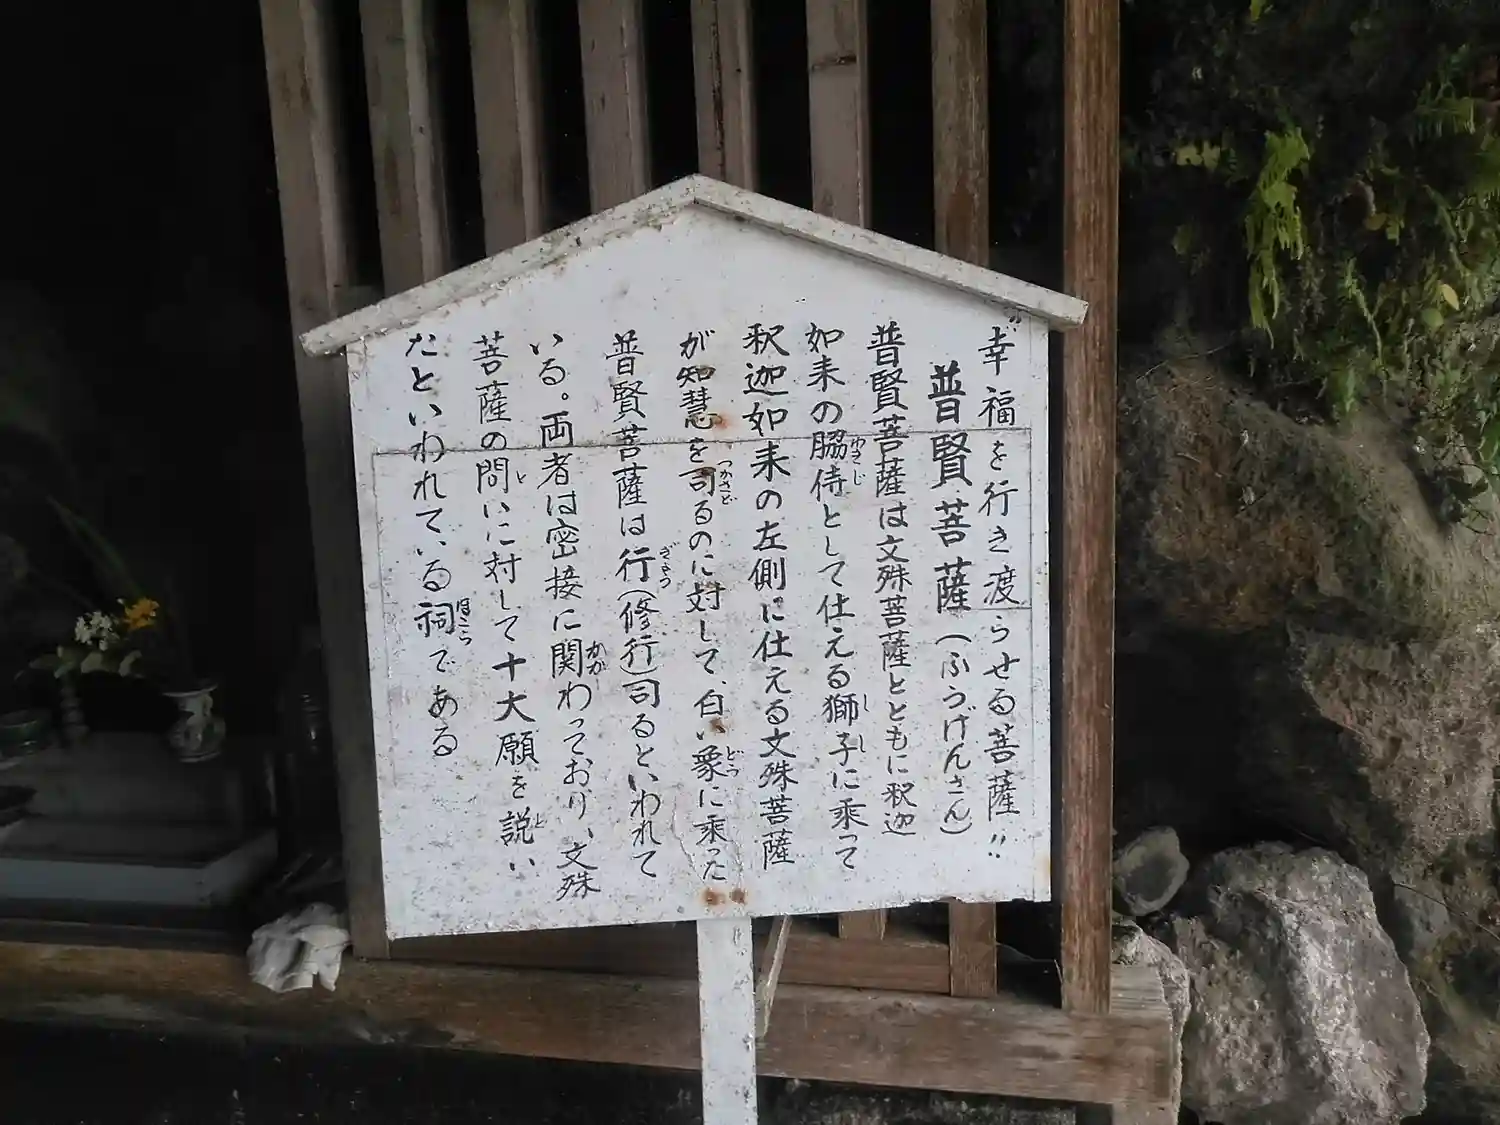 幸福を行き渡らせる菩薩!!
普賢菩薩(ふうげんさん)
普賢菩薩は文殊菩薩とともに釈迦
如来の脇侍として仕える獅子に乗って
釈迦如来の左側に仕える文殊菩薩
が知慧を司るのに対して、白い象に乗った
普賢菩薩は行(修行)司るといわれて
いる。両者は密接に関わっており、文殊
菩薩の問いに対して十大願を説い
たといわれている祠である